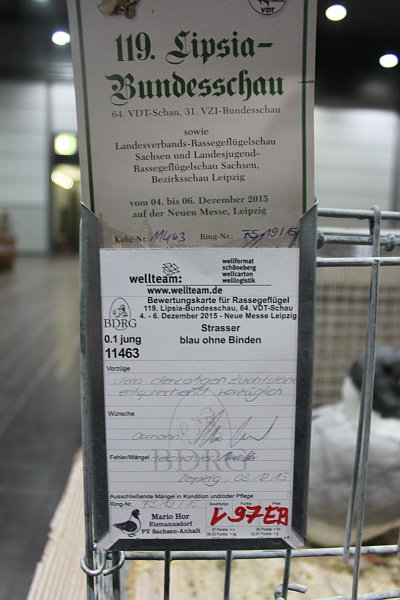 VDT
119. Lipsia-
Bundesschau
64. VDT-Schau, 31. VZI-Bundesschau
sowie
Landesverbands-Rassegeflügelschau
Sachsen und Landesjugend-
Rassegeflügelschau Sachsen,
Bezirksschau Leipzig
vom 04. bis 06. Dezember 2015
auf der Neuen Messe, Leipzig
Käfig-Nr. 11463 Ring-Nr.
wellteam:
wellformat
schöneberg
wellcarton
welllogistik
www.wellteam.de
Bewertungskarte für Rassegeflügel
119. Lipsia-Bundesschau, 64. VDT-Schau
4. - 6. Dezember 2015 - Neue Messe Leipzig
BDRG
Strasser
0.1 jung
blau ohne Binden
11463
Vorzüge
dem derzeitigen Zuchtstand
entsprechend vorzüglich
Wünsche
BDRG
Fehler/Mängel
Leipzig, 03.12.15
Ausschließende Mängel in Kondition und/oder Pflege
Ring-Nr.
Mario Hor
Eismannsdorf
PV Sachsen-Anhalt
V 97 EB